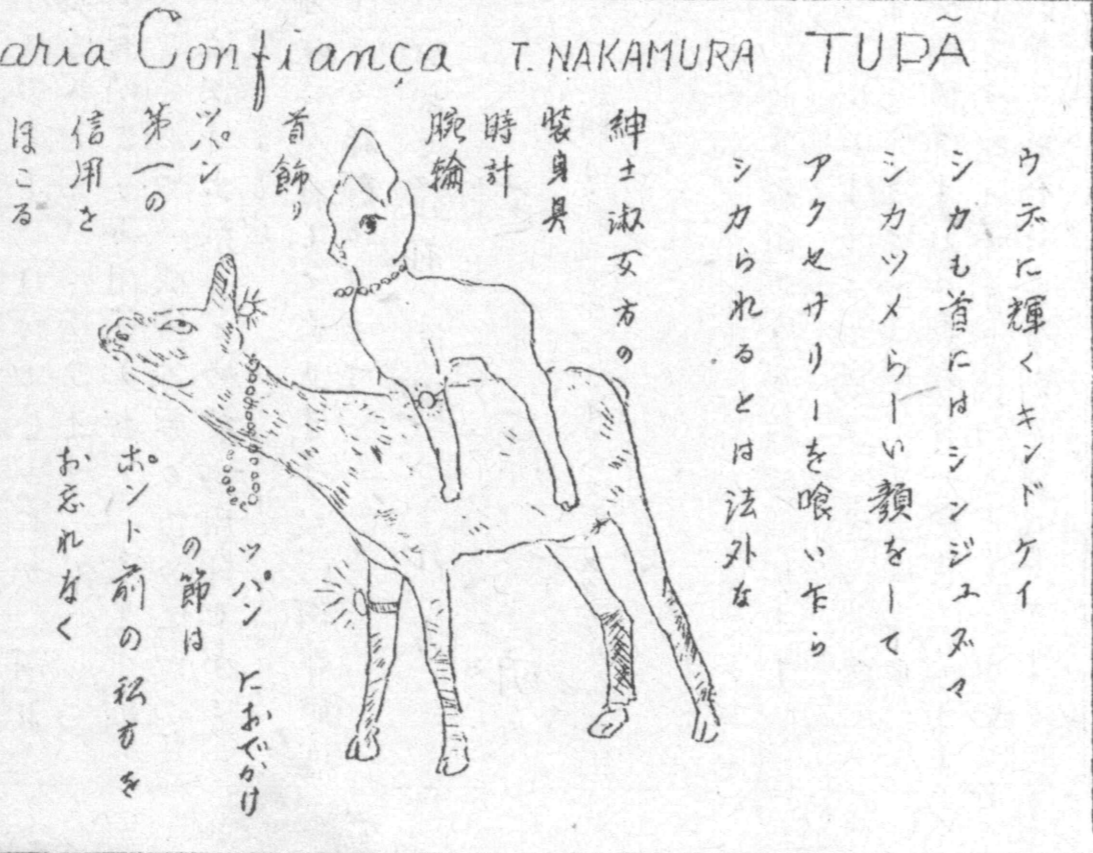 aria Confiança T. NAKAMURA TUPÃ
ウデに輝くキンドケイ
シカも首にはシンジュダマ
シカツメらしい顔をして
アクセサリーを喰いたら
シカられるとは法外な
紳士淑女方の
装身具
時計
腕輪
首飾り
ツパン
第一の
信用を
ほこる
ツパンにおでかけ
の節は
ポント前の私方を
お忘れなく